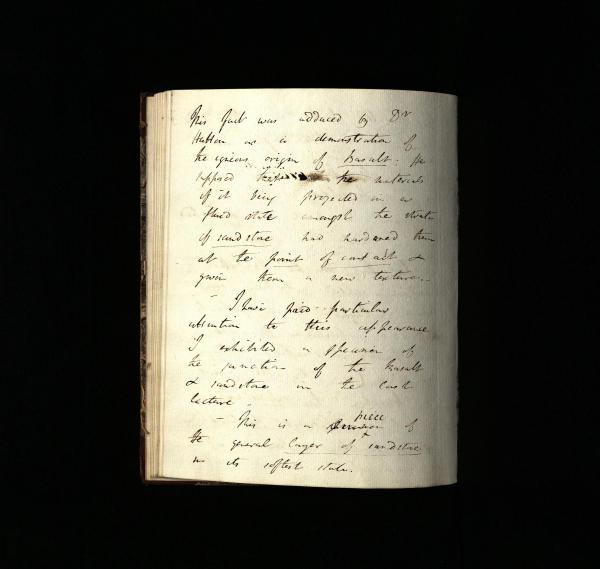 This fact was adduced by Dr
Hutton as a demonstration of
the igneous origin of basalt: He
supposed the materials
of it being projected in a
fluid state amongst the strata
of sandstone had hardened them
at the point of contact &
given them a new texture. -
- I have paid particular
attention to this appearance
I exhibited a specimen of
the junction of the basalt
& sandstone in the last
lecture -
- This is a piece of
the general layer of sandstone
in its softest state.